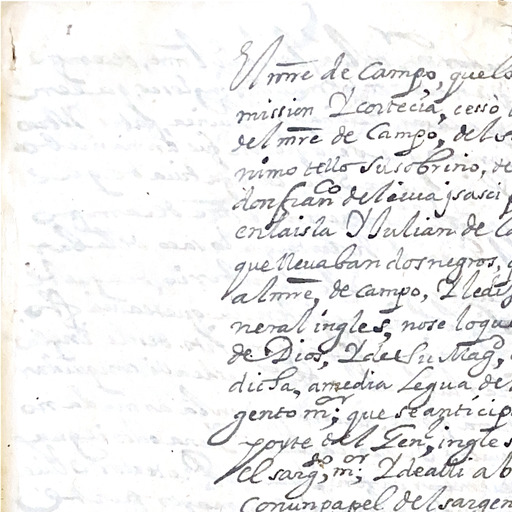 El mr̃e de Campo, que lo
mission Y cortecia, cessò
del mr̃e de Campo, del s
nimo tello su sobrino, de
don fran^co de leiua
en la isla Y Iulian de Ca
que lleuaban dos negros,
al mr̃e, de campo, Y le di
neral ingles, no se lo qu
de Dios, Y de su Mag^d,
dicha, a media legua del
gento m^or; que se anticip
porte del Gen^l, ingles
el sarg^to, m^or; Y de alli a b
con un papel del sargen